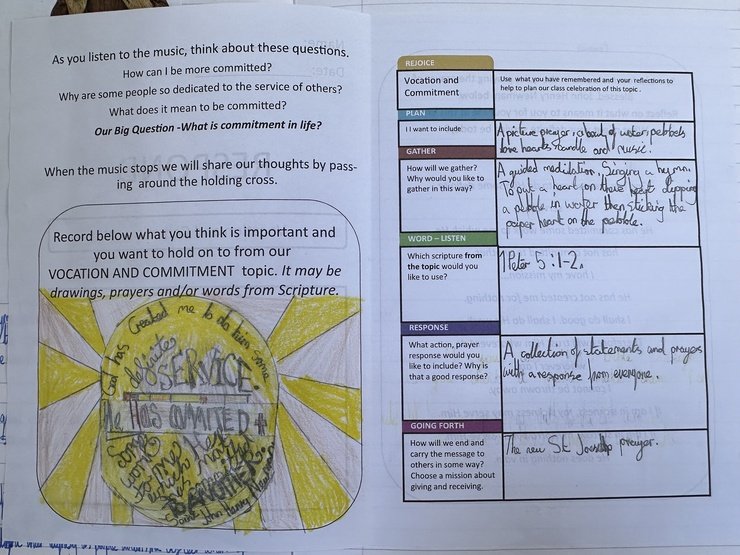 As you listen to the music, think about these questions.
How can I be more committed?
Why are some people so dedicated to the service of others?
What does it mean to be committed?
Our Big Question -What is commitment in life?
When the music stops we will share our thoughts by pass-
ing around the holding cross.
Record below what you think is important and
you want to hold on to from our
VOCATION AND COMMITMENT topic. It may be
drawings, prayers and/or words from Scripture.
God has Created me to do him some
definite
SERVICE.
He HAS COMMITED
Some
Work
to me
REJOICE
Vocation and
Commitment
Use what you have remembered and your reflections
to help to plan our class celebration of this topic.
PLAN
I I want to include
A picture prayer, a bowl of water, pebbels
love hearts candle and music.
GATHER
How will we gather?
Why would you like to
gather in this way?
A guided meditation, Singing a hymn.
To put a heart on there heart dipping
a pebble in water then sticking the
paper heart on the pebble.
WORD – LISTEN
Which scripture from
the topic would you
like to use?
1 Peter 5:1-2.
RESPONSE
What action, prayer
response would you
like to include? Why is
that a good response?
A collection of statements and prayers
with a response from everyone.
GOING FORTH
How will we end and
carry the message to
others in some way?
Choose a mission about
giving and receiving.
The new St. prayer.